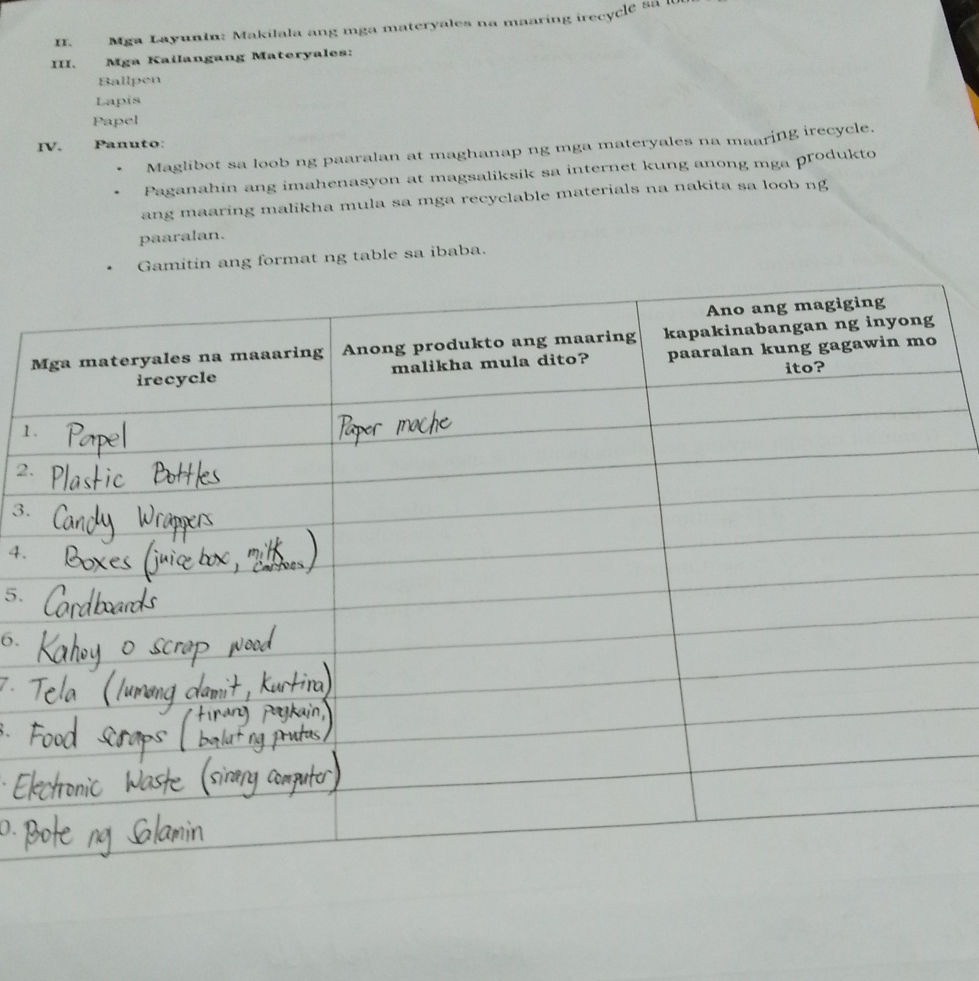 II. Mga Layunin: Makilala ang mga materyales na maaring irecycle sa
III. Mga Kailangang Materyales:
Ballpen
Lapis
Papel
IV. Panuto:
• Maglibot sa loob ng paaralan at maghanap ng mga materyales na maaring irecycle.
• Paganahin ang imahenasyon at magsaliksik sa internet kung anong mga produkto
ang maaring malikha mula sa mga recyclable materials na nakita sa loob ng
paaralan.
• Gamitin ang format ng table sa ibaba.
Mga materyales na maaaring
irecycle
Anong produkto ang maaring
malikha mula dito?
Ano ang magiging
kapakinabangan ng inyong
paaralan kung gagawin mo
ito?
1. Papel
Paper mache
2. Plastic Bottles
3. Candy Wrappers
4. Boxes (juice box, milk
cartoons)
5. Cardboards
6. Kahoy o scrap wood
7. Tela (lumang damit, kurtina)
8. Food scraps (tirang pagkain,
balat ng prutas)
. Electronic Waste (sirang computer)
0. Bote ng Salamin